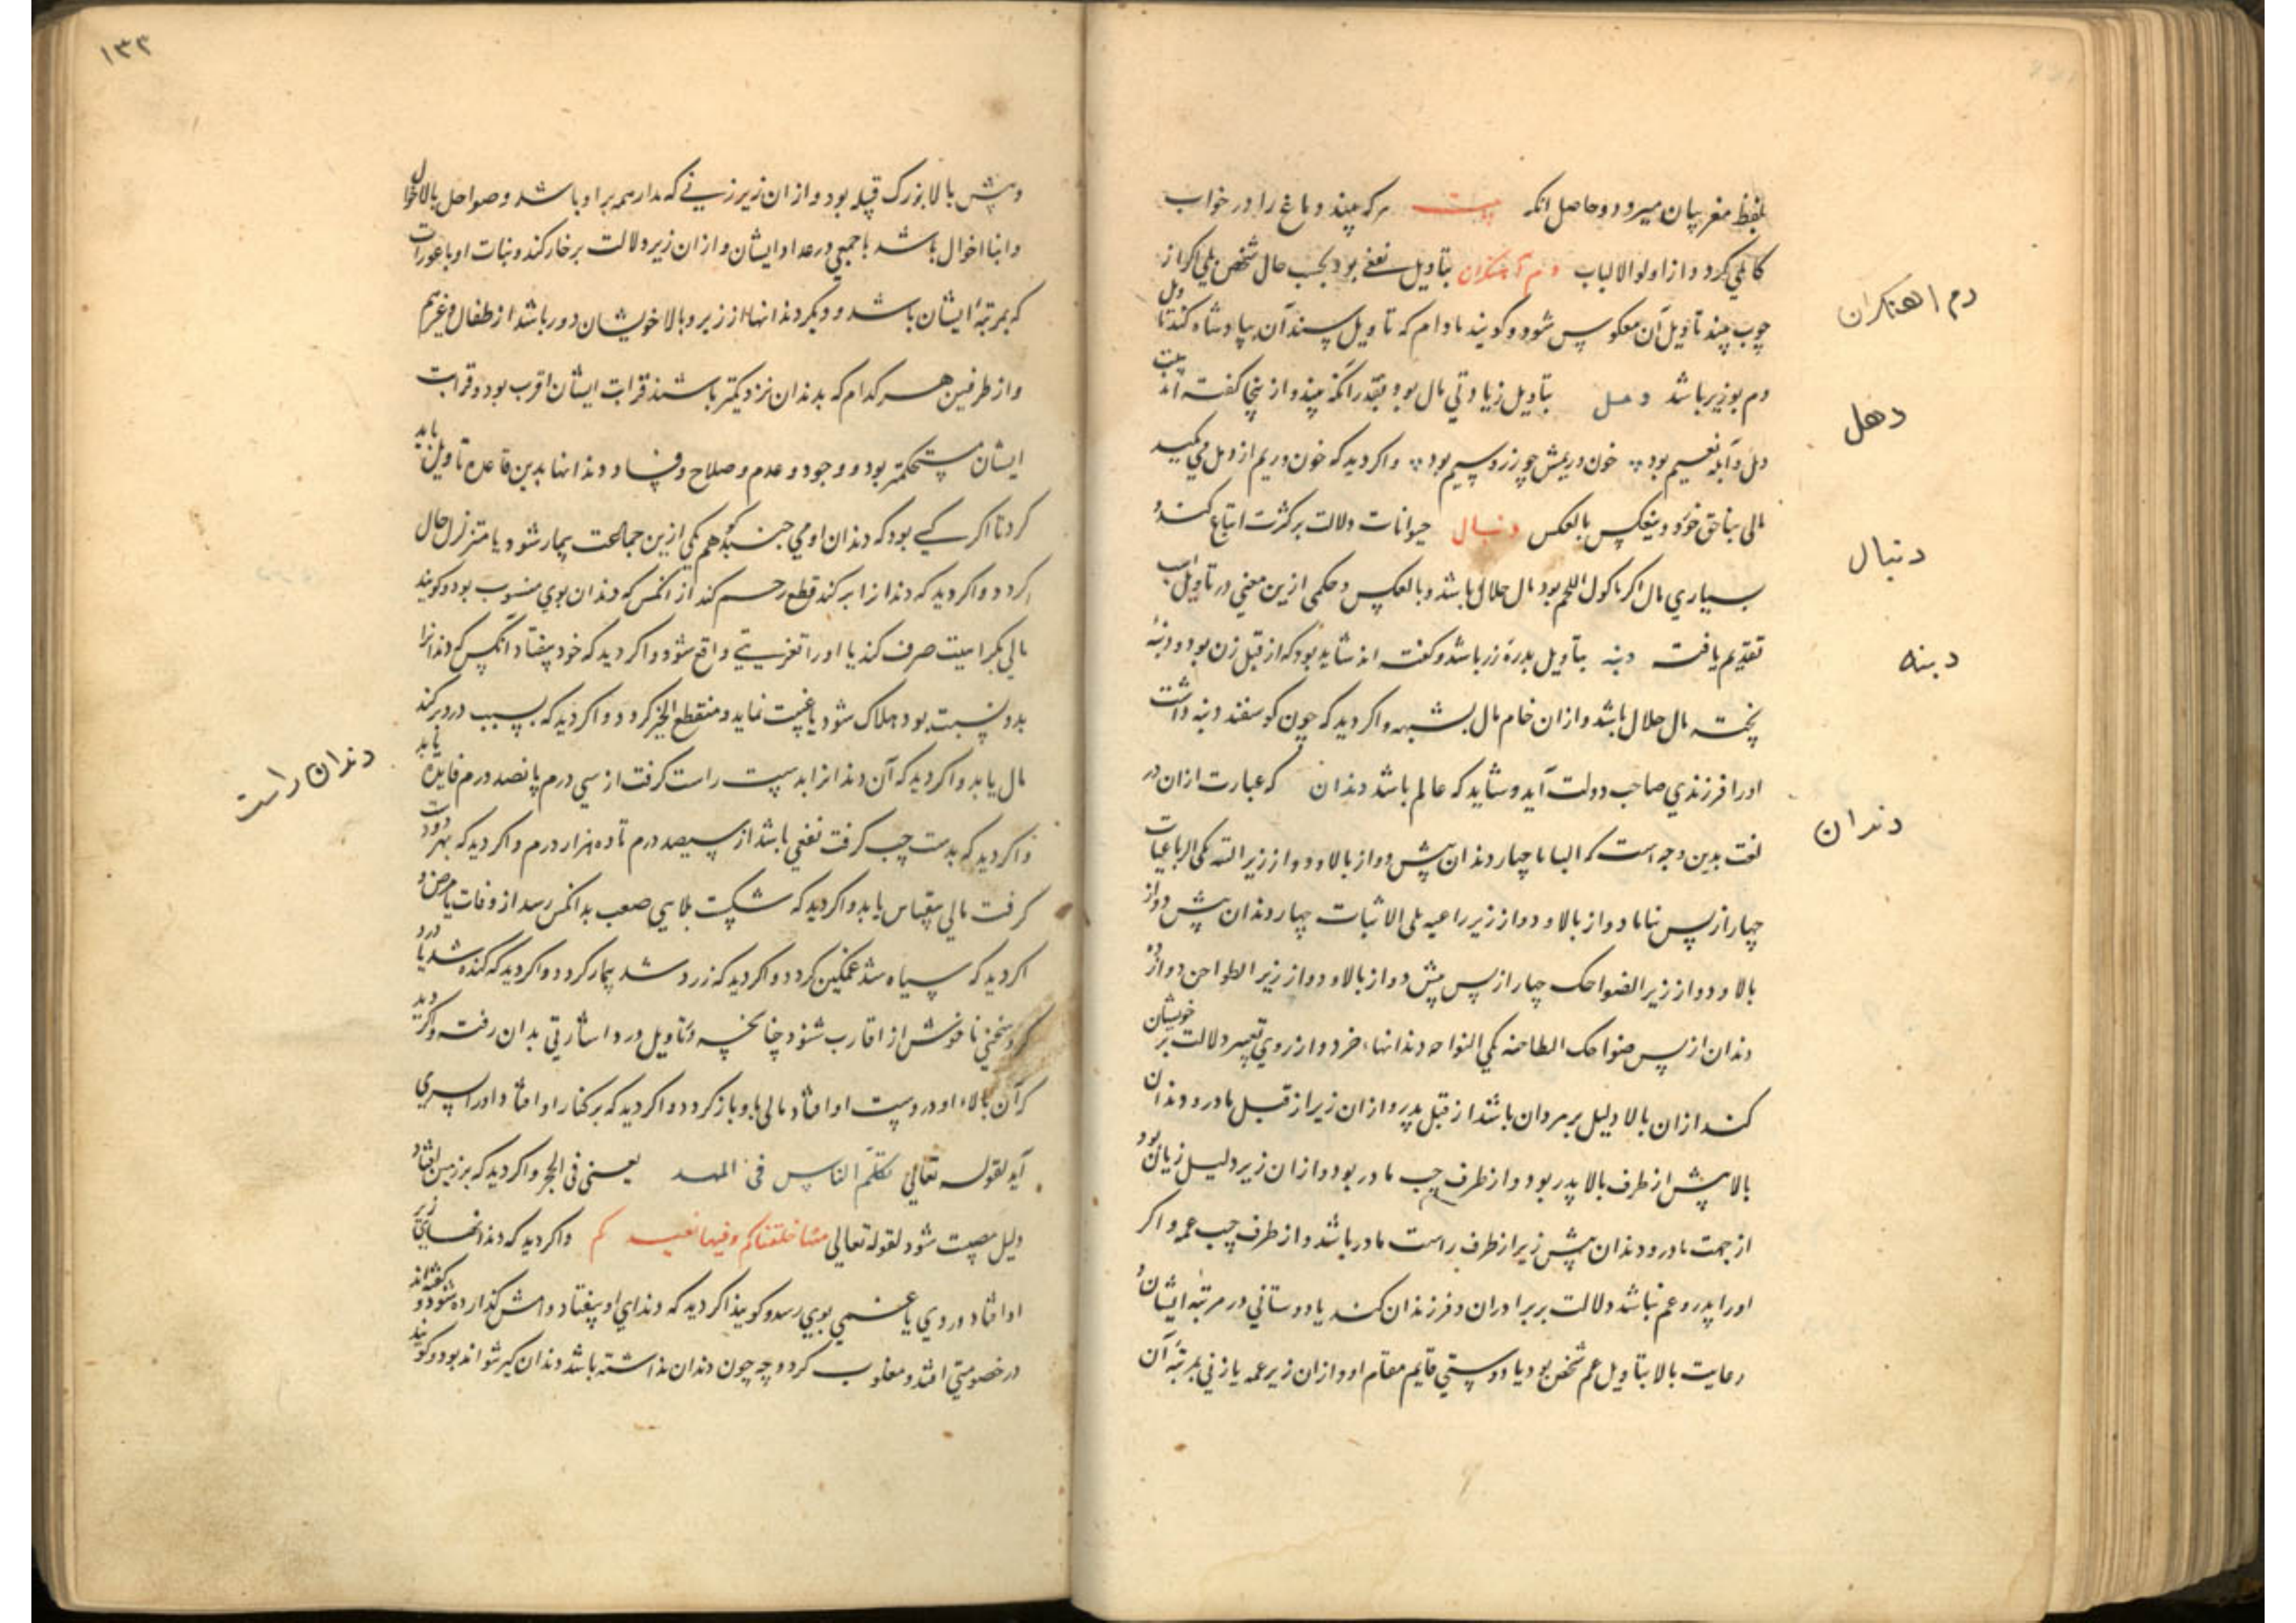 بلفظ مغز بیان میرود و حاصل انکه بیت هرکه بیند دماغ را در خواب
کاملی کردد از اولو الالباب دم آهنکران بتاویل نفعی بود بحسب حال شخص بلی اکر از
چوب بیند تاویل آن معکوس شود و کویند مادام که تاویل سندان بپادشاه کنند تاویل
دم بوزیر باشد دمل بتاویل زیادتی مال بود بقدر انکه بیند و از ینجا کفته اند بیت
دمل و آبله نعیم بود خون و ریمش چو زر و سیم بود و اکر دید که خون و ریم از دمل می مکید
مالی بناحق خورد و ینعکس بالعکس دنبال حیوانات دلالت بر کثرت اتباع کند و
بسیاری مال اکر ماکول اللحم بود مال حلال باشد و بالعکس و حکمی ازین معنی در تاویل اسب
تقدیم یافت دنبه بتاویل بدره زر باشد و کفته اند شاید بود که از قبل زن بود و دنبه
پخته مال حلال باشد و از ان خام مال بشبهه و اکر دید که چون کوسفند دنبه داشت
اورا فرزندی صاحب دولت آید و شاید که عالم باشد دندان که عبارت ازان در
لغت بدین وجه است که الثنایا چهار دندان پیش دو از بالا و دو از زیر الثنیه یکی الرباعیات
چهار از پس ثنایا دو از بالا و دو از زیر رباعیه یکی الانیاب چهار دندان پیش دو از
بالا و دو از زیر الضواحک چهار از پس پیش دو از بالا و دو از زیر الطواحن دوازده
دندان از پس ضواحک الطاحنه یکی النواجد دندانها خرد و از روی تعبیر دلالت بر خویشان
کند ازان بالا دلیل بر مردان باشد از قبل پدر و ازان زیر از قبل مادر و دندان
بالا پیش از طرف بالا پدر بود و از طرف چپ مادر بود و ازان زیر دلیل زیان بود
از جهت مادر و دندان پیش زیر از طرف راست مادر باشد و از طرف چپ عمه و اکر
اورا پدر و عم نباشد دلالت بر برادران و فرزندان کند یا دوستانی در مرتبه ایشان و
رعایت بالا بتاویل عم شخص بود یا دوستی قایم مقام او و ازان زیر عمه یا زنی بمرتبه آن
دم اهنکران
دهل
دنبال
دبنه
دندان
۱۳۲
و پیش بالا بزرک قبیله بود و ازان زیر زنی که مدار همه بر او باشد و ضواحک بالا خوال
و ابنا اخوال باشد با جمعی در عداد ایشان و ازان زیر دلالت بر خاله کند و بنات او با عورات
که بمرتبه ایشان باشد و دیکر دندانها از زیر و بالا خویشان دور باشد از طفال و غیرهم
و از طرفین هر کدام که بدندان نزدیکتر باشند قرابت ایشان اقرب بود و قرابت
ایشان مستحکمتر بود و وجود و عدم و صلاح و فساد دندانها بدین قاعده تاویل باید
کرد تا اکر کسی بود که دندان او می جنبد هم یکی ازین جماعت بیمار شود یا متزلزل حال
کردد و اکر دید که دندانرا برکند قطع رحم کند از انکس که دندان بوی منسوب بود و کویند
مالی بکراهیت صرف کند یا اورا تعزیتی واقع شود و اکر دید که خود بیفتاد انکس که دندانرا
بدو نسبت بود هلاک شود یا غیبت نماید و منقطع الخبر کردد و اکر دید که بسبب درد برکند
مال یابد و اکر دید که آن دندانرا بدست راست کرفت از سی درم پانصد درم فایده یابد
و اکر دید که بدست چپ کرفت نفعی باشد از سیصد درم تا ده هزار درم و اکر دید که بهر دو دست
کرفت مالی بیقیاس یابد و اکر دید که شکست بلایی صعب بدانکس رسد از وفات یا مرض و
اکر دید که سیاه شد غمکین کردد و اکر دید که زرد شد بیمار کردد و اکر دید که کنده شد یا درد
کرد سخنی ناخوش از اقارب شنود چنانچه در تاویل درد اشارتی بدان رفت و اکر دید
که آن بالاء او در دست او افتاد مالی باو باز کردد و اکر دید که بر کنار او افتاد اورا پسری
آید لقوله تعالی تکلم الناس فی المهد یعنی فی الحجر و اکر دید که بر زمین افتاد
دلیل مصیبت شود لقوله تعالی منها خلقناکم و فیها نعیدکم و اکر دید که دندانهای زیر
او افتاد دردی یا غمی بوی رسد و کویند اکر دید که دندانهای او بیفتاد وامش کزارده شود و کفته اند
در خصومتی افتد و مغلوب کردد چه چون دندان نداشته باشد دندان کیر نتواند بود و کویند
دندان راست